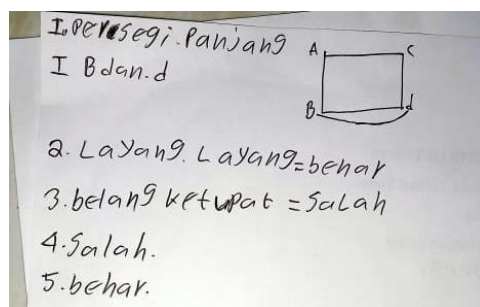 I. Persegi. Panjang
I B dan. d
A C
B d
2. Layang. Layang = benar
3. belang ketupat = Salah
4. Salah.
5. benar.